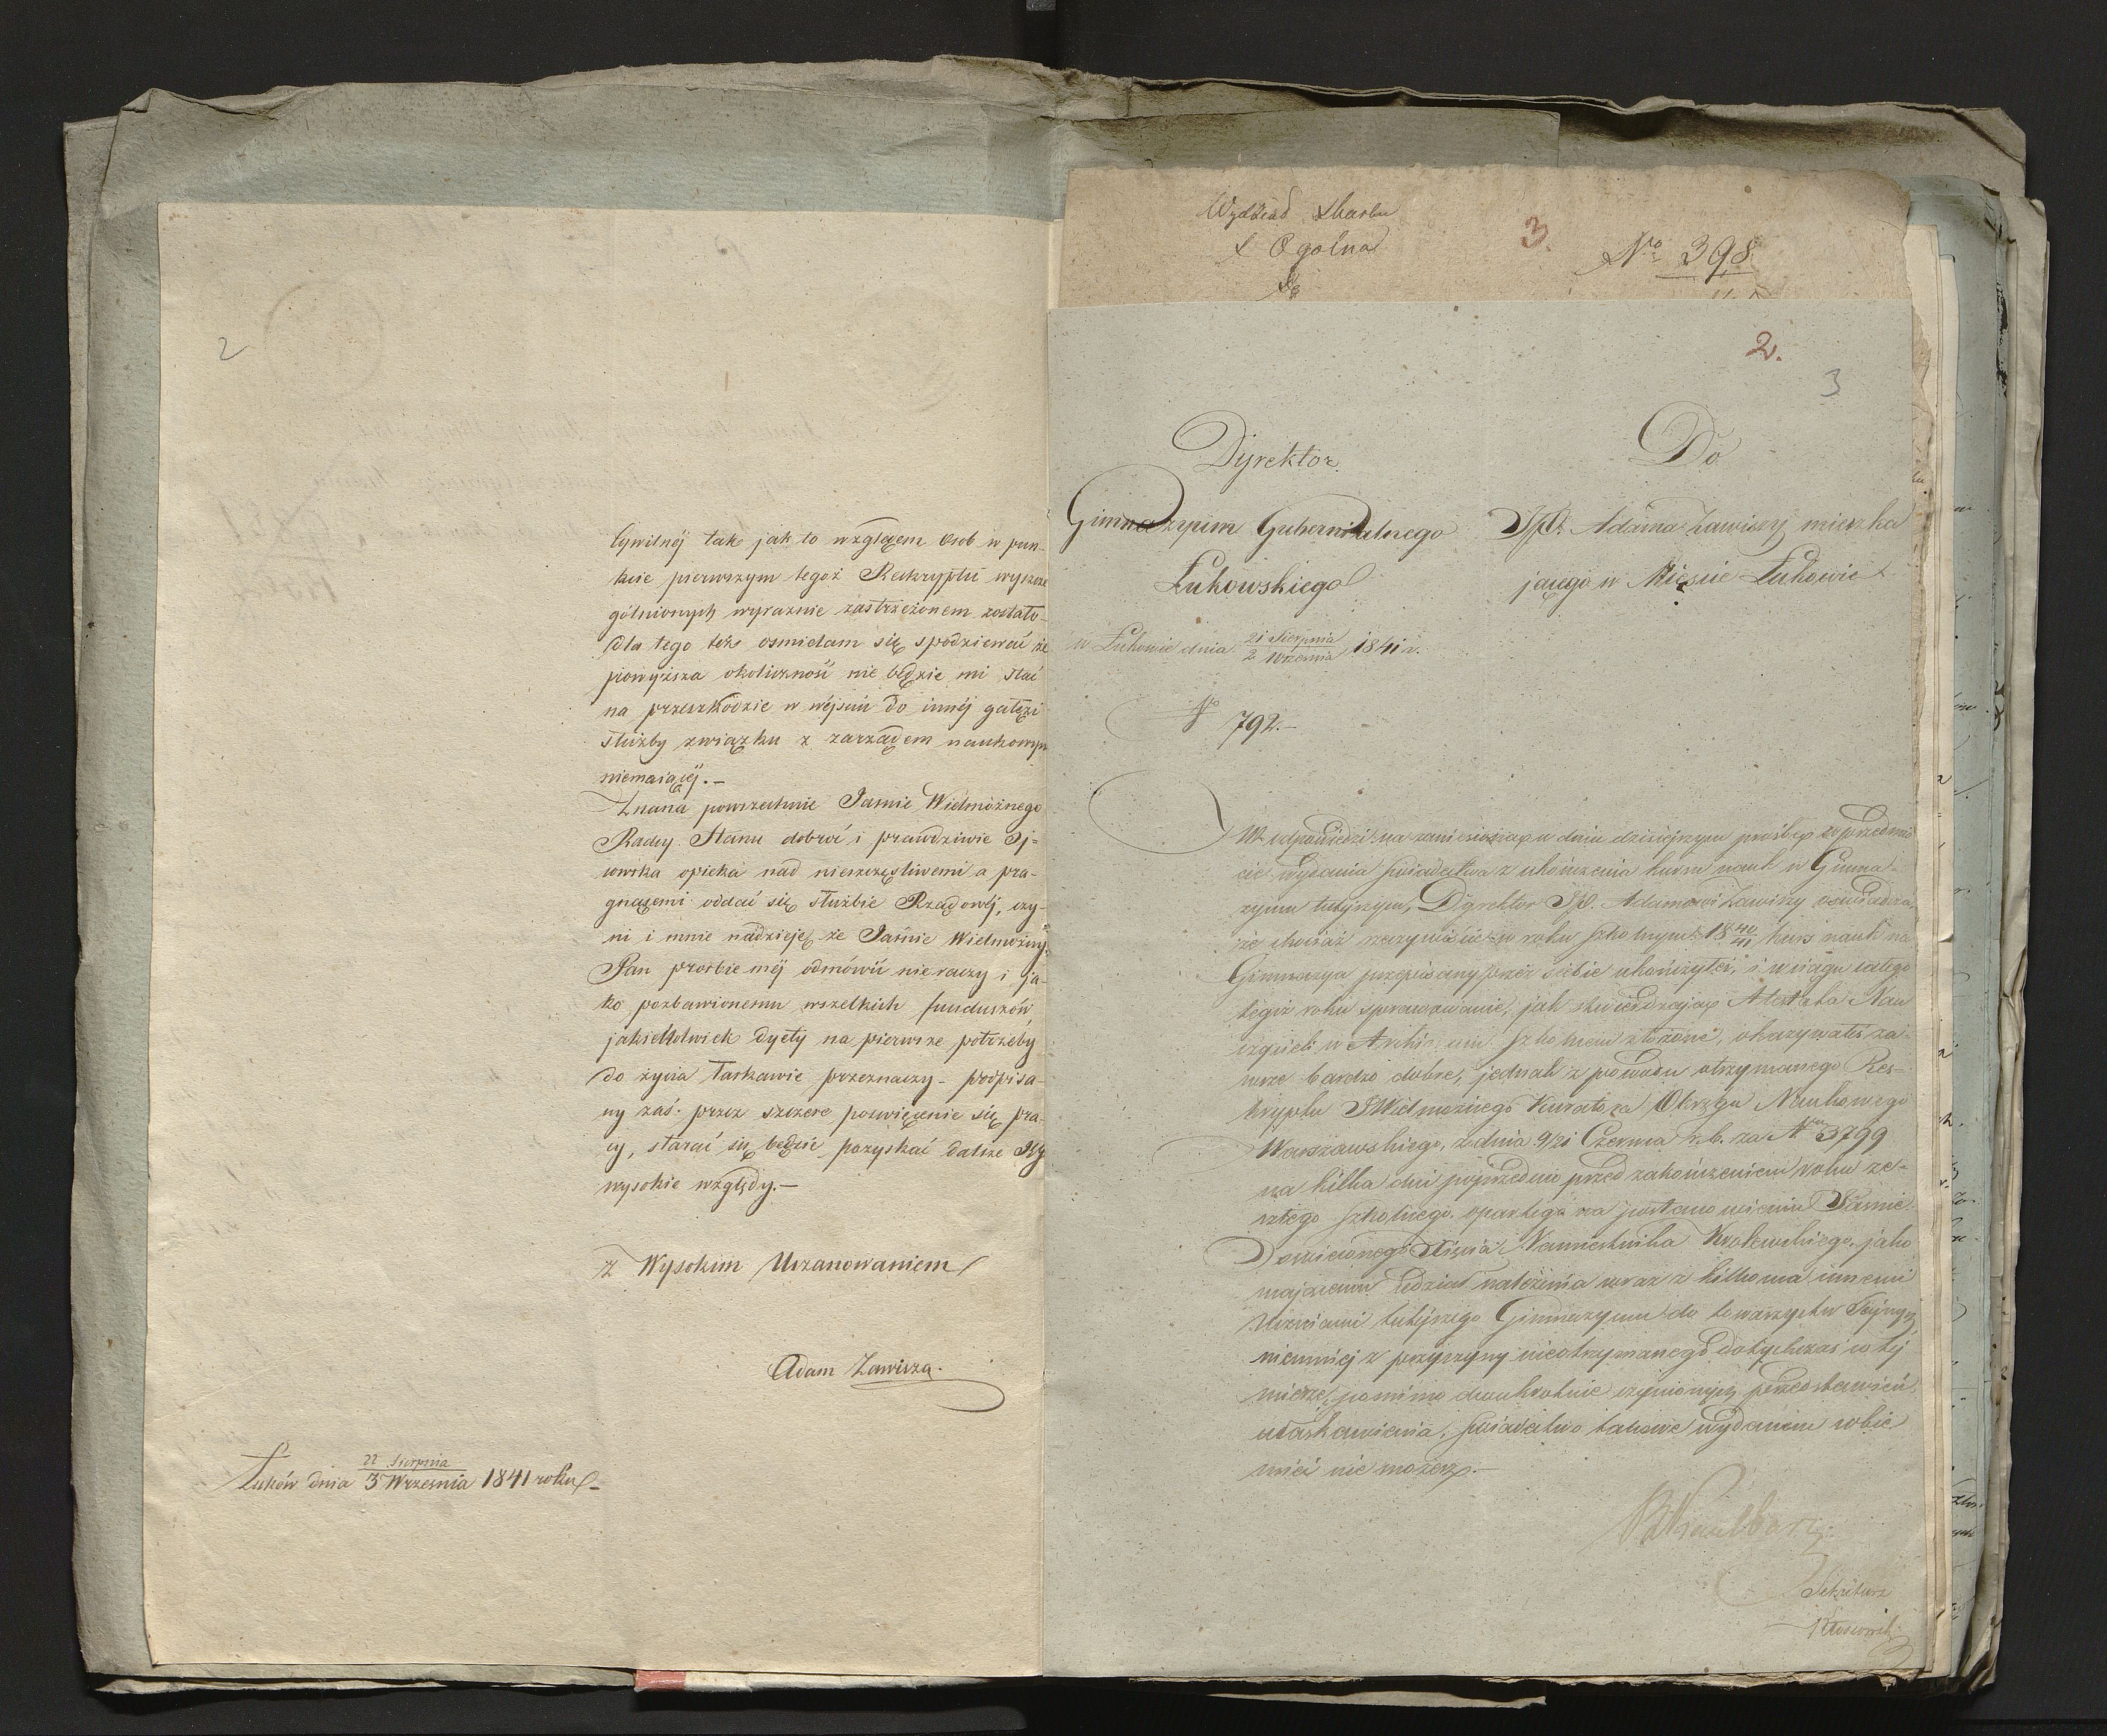 2
Cywilnéj tak jak to względem Osob w pun-
kcie pierwszym tegoż Reskryptu wyszcze
gólnionych wyraznie zastrzeżonem zostało
dla tego też osmielam się spodziewać że
powyższa okoliczność nie będzie mi stać
na przeszkodzie w wéjsciu do innéj gałęzi
służby związku z zarządem naukowym
niemaiącéj. –
Znana powszechnie Jasnie Wielmożnego
Radcy Stanu dobroć i prawdziwie Oj-
cowska opieka nad nieszczęsliwemi a pra-
gnącemi oddać się służbie Rządowéj, czy-
ni i mnie nadzieję że Jaśnie Wielmożny
Pan prosbie méj odmówić nie raczy i ja-
ko pozbawionemu wszelkich funduszów
jakiekolwiek dyety na pierwsze potrzeby
do życia łaskawie przeznaczy – podpisa-
ny zaś przez szczere poswięcenie się pra-
cy, starać się będzie pozyskać dalsze Jego
wysokie względy. –
z Wysokim Uszanowaniem
Adam Zawisza.
Łuków dnia 22 Sierpnia / 3 Września 1841 roku –
Wydział Skarbu
S Ogólna
3.
No 398
2.
3
Dyrektor
Gimnazyum Gubernialnego
Łukowskiego
w Łukowie dnia 21 Sierpnia / 2 Września 1841 r.
No 792. –
Do
JP. Adama Zawiszy mieszka
jącego w Mieście Łukowie
W odpowiedzi na zaniesioną w dniu dzisiejszym prośbę w przedmio
cie wydania świadectwa z ukończenia kursu nauk w Gimna-
zyum tutejszym, Dyrektor JP. Adamowi Zawiszy oświadcza,
że chociaż rzeczywiście w roku szkolnym 1840/41 kurs nauk na
Gimnazya przepisany przez siebie ukończyłeś, i w ciągu całego
tegoż roku sprawowanie, jak stwierdzają Attestata Nau
czycieli w Archiwum szkolnem złożone, okazywałeś za-
wsze bardzo dobre, jednak z powodu otrzymanego Res-
kryptu JWielmożnego Kuratora Okręgu Naukowego
Warszawskiego, z dnia 9/21 Czerwca r. b. za Nrem 3799
na kilka dni poprzednio przed zakończeniem roku ze-
szłego szkolnego, opartego na postanowieniu Jaśnie
Oświeconego Xięcia Namiestnika Królewskiego, jako
mającemu udział należenia wraz z kilkoma innemi
Uczniami tutejszego Gimnazyum do towarzystw Tajnych
niemniej z przyczyny nieotrzymanego dotychczas w tej
mierze, pomimo dwukrotnie czynionych przedstawień,
ułaskawienia, świadectwo takowe wydanem sobie
mieć nie możesz. –
Sekretarz